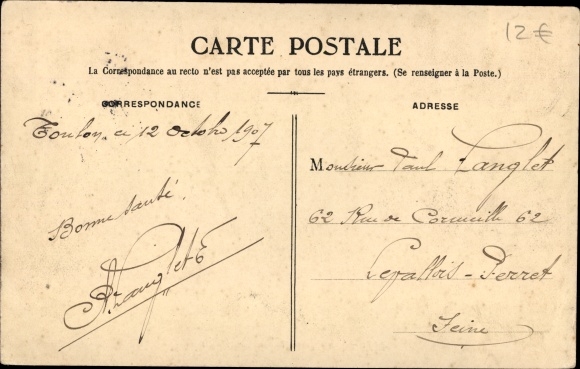 12€
CARTE POSTALE
La Correspondance au recto n'est pas acceptée par tous les pays étrangers. (Se renseigner à la Poste.)
CORRESPONDANCE
ADRESSE
Toulon ce 12 Octobre 1907
Monsieur Paul Langlet
62 Rue de Cormeille 62
Levallois-Perret
Seine
Bonne santé.
Langlet